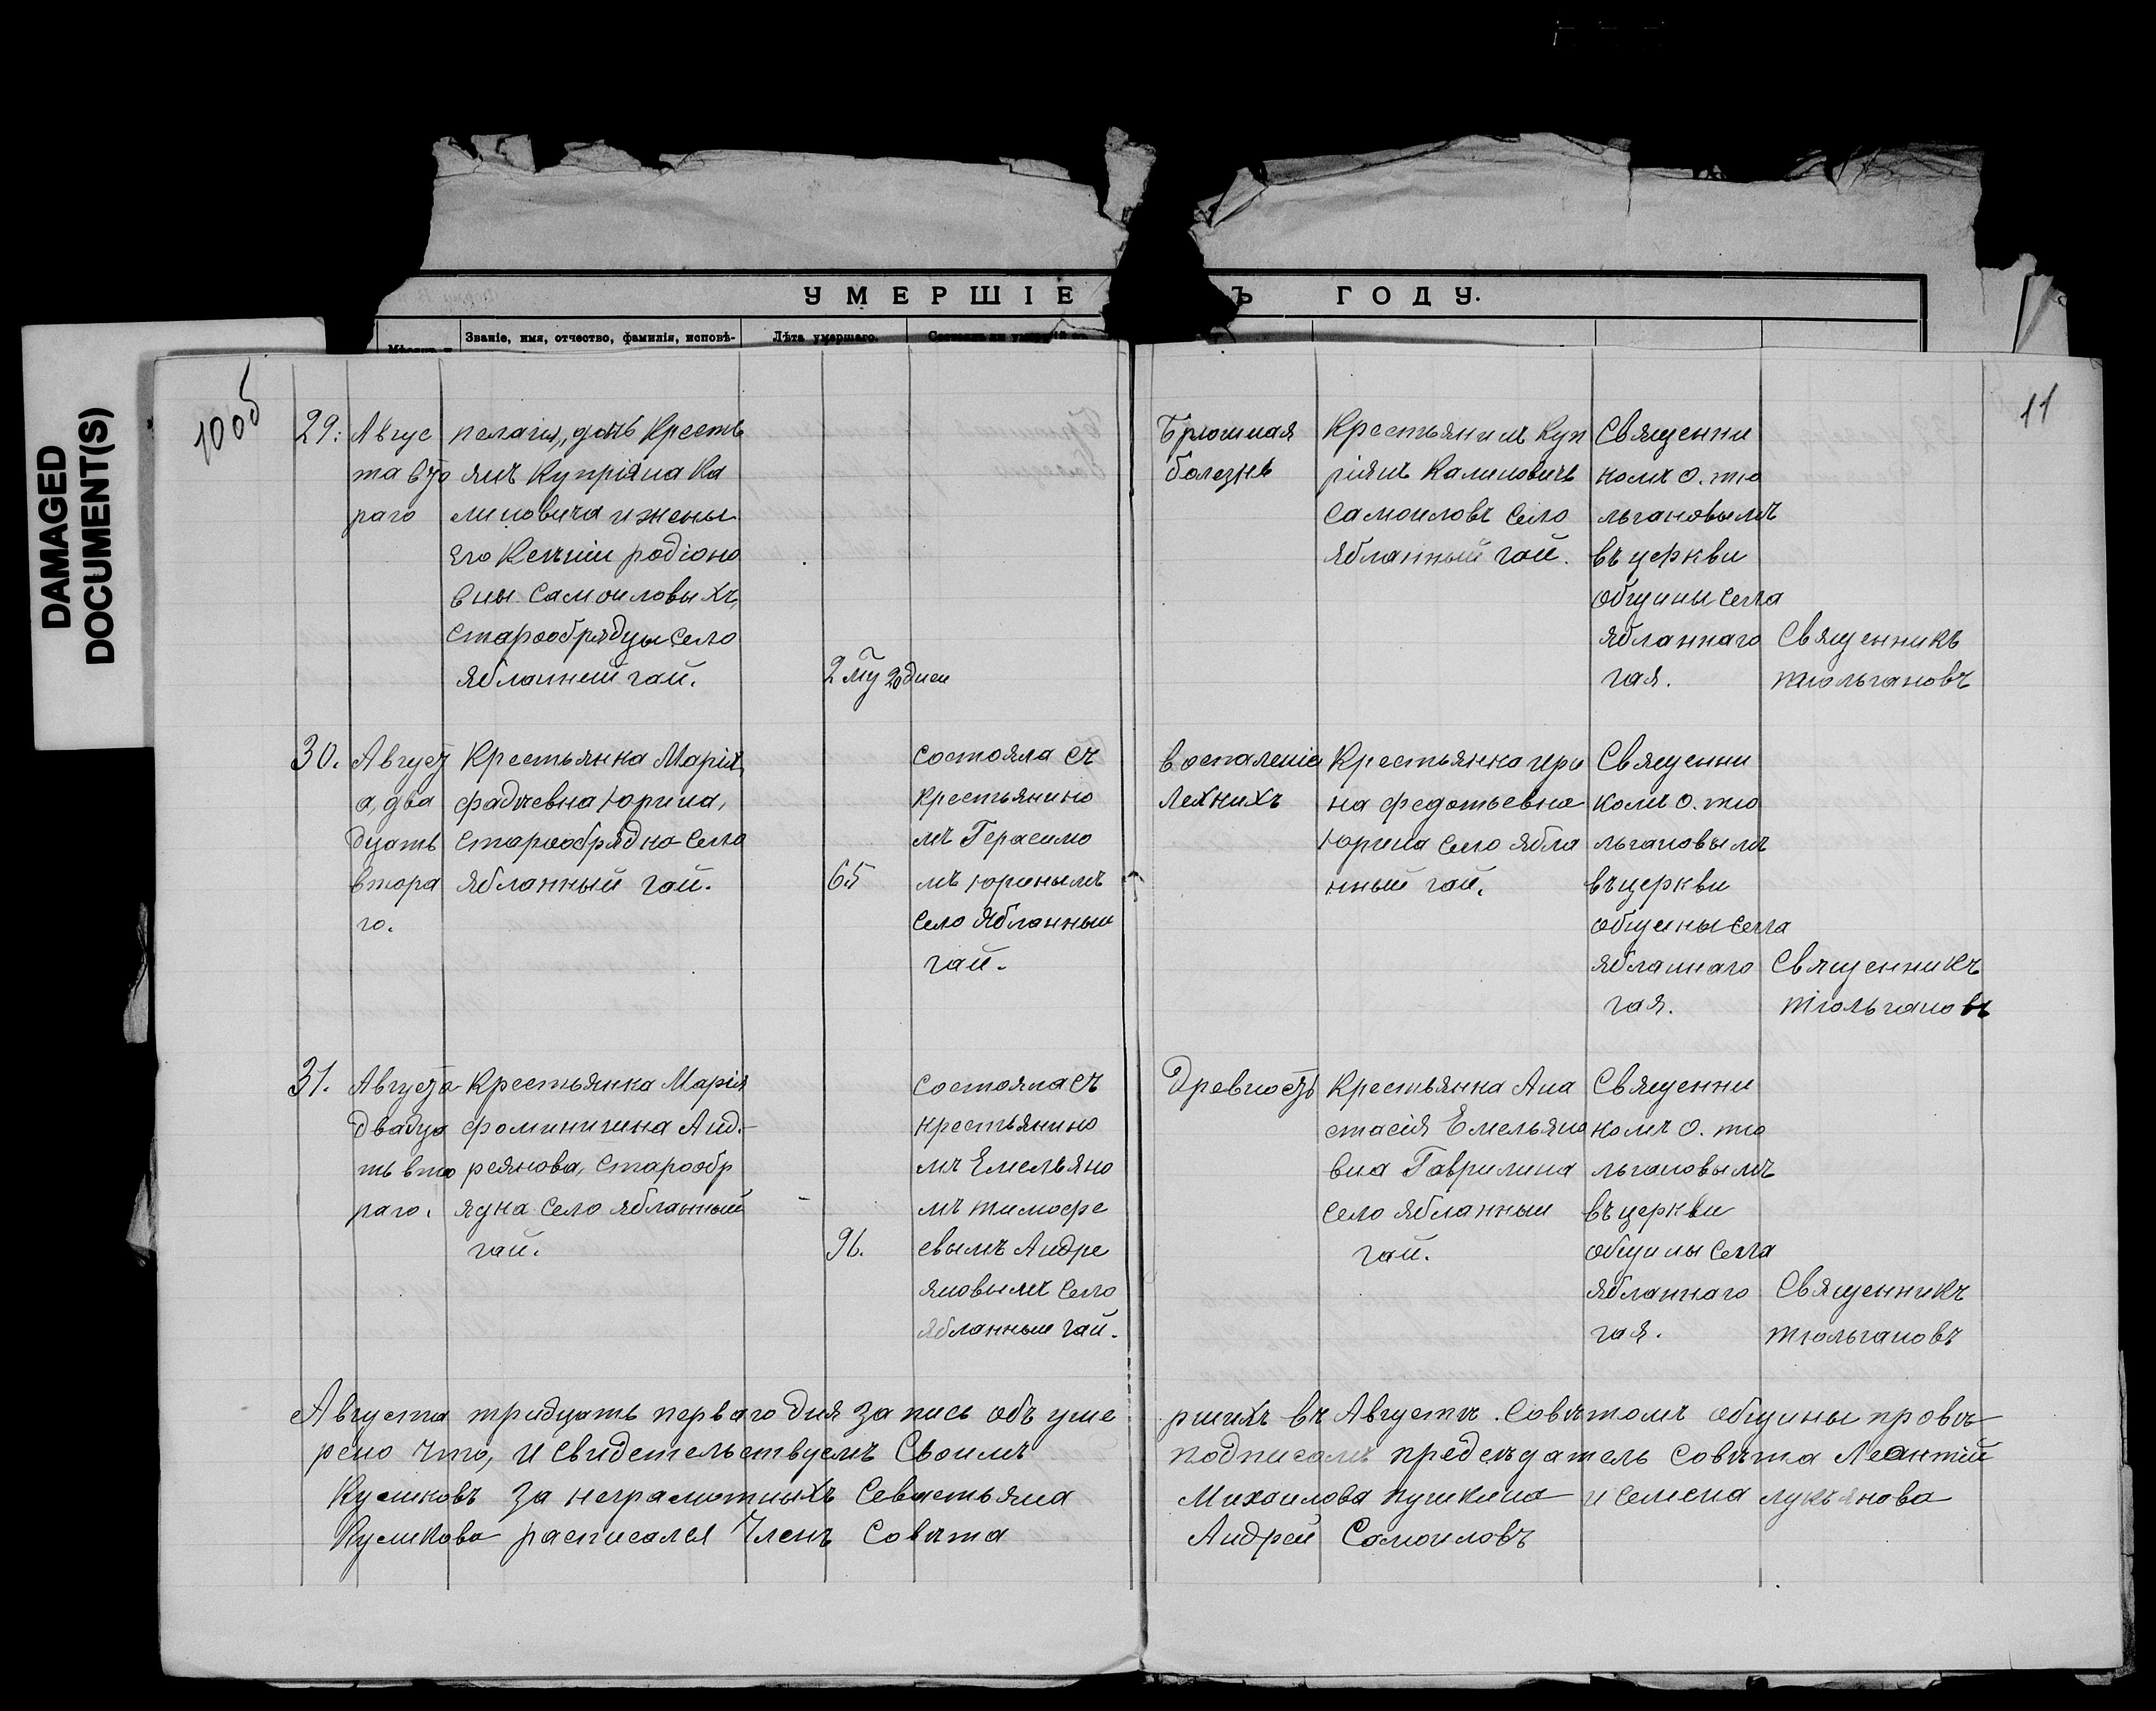 DAMAGED
DOCUMENT(S)
УМЕРШІЕ Ъ ГОДУ.
Званіе, имя, отчество, фамилія, исповѣ-
Лѣта умершаго.
10 об
11
29.
Авгус
та вто
раго
пелагия, дочь Кресть
янъ Купріяна Ка
линовича и жены
его Ксеніи родіоно
вны Самоиловыхъ,
старообрядцы село
Яблонный гай.
2 мц 20 дней
Брюшная
болезнь
Крестьянинъ Куп
ріянъ Калиновичъ
Самоиловъ село
Яблонный гай.
Священни
комъ о. тю
льгановымъ
въ церкви
общины села
Яблоннаго
гая.
Священникъ
тюльгановъ
30.
Август
а, два
дцать
втора
го.
Крестьянка Марія
фадѣевна Юрина,
старообрядка село
Яблонный гай.
65
состояла съ
крестьянино
мъ Герасимо
мъ Юринымъ
село Яблонный
гай.
воспаленіе
легкихъ
Крестьянка ири
на федотьевна
Юрина село Ябло
нный гай.
Священни
комъ о. тю
льгановымъ
въ церкви
общины села
Яблоннаго
гая.
Священникъ
тюльгановъ
31.
Августа
двадца
ть вто
раго.
Крестьянка Марія
фоминична Анд-
реянова, старообр
ядка село Яблонный
гай.
96.
состояла съ
крестьянино
мъ Емельяно
мъ тимофе
евымъ Андре
яновымъ село
Яблонный гай.
Древность
Крестьянка Ана
стасія Емельяно
вна Гаврилина
село Яблонный
гай.
Священни
комъ о. тю
льгановымъ
въ церкви
общины села
Яблоннаго
гая.
Священникъ
тюльгановъ
Августа тридцать перваго дня запись объ уме ршихъ въ Августѣ. Совѣтомъ общины провѣ
рено что, и свидетельствуемъ Своимъ подписомъ председатель Совѣта Леонтій
Куликовъ за неграмотныхъ Севастьяна Михаилова пушкина и семена лукьянова
Куликова расписался Членъ Совѣта Андрей Самоиловъ